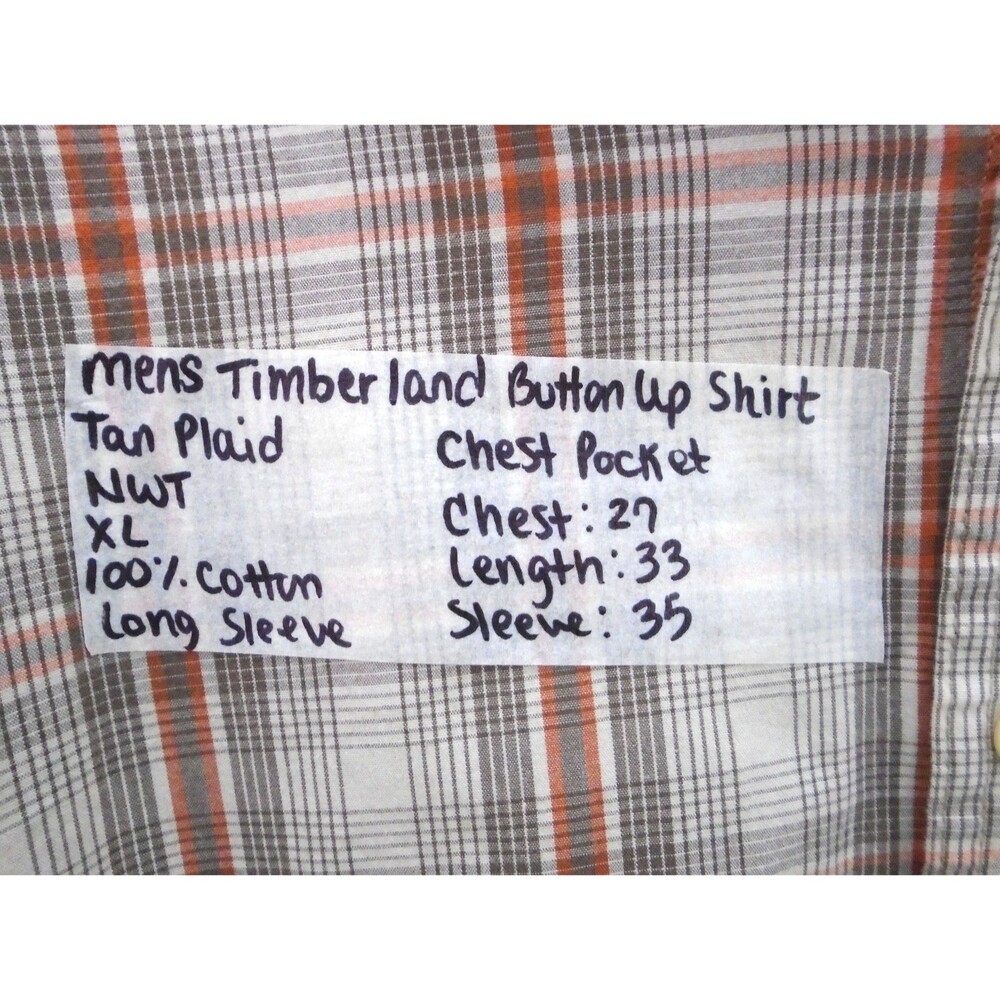 mens Timberland Button Up Shirt
Tan Plaid
NWT
XL
100% Cotton
Long Sleeve
Chest Pocket
Chest: 27
Length: 33
Sleeve: 35